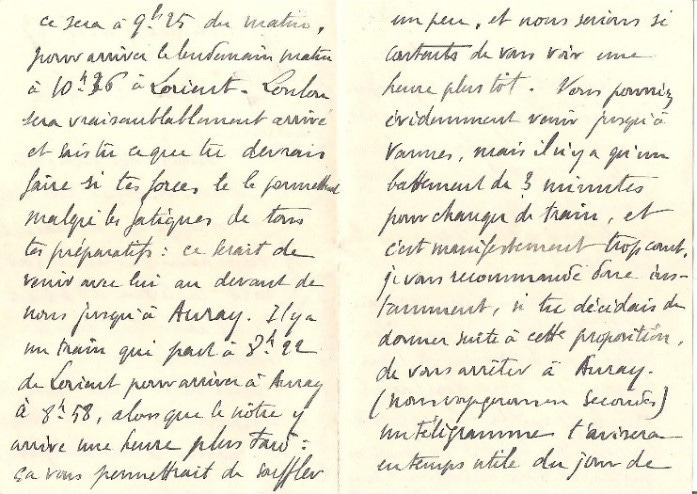 ce sera à 9h 25 du matin,
pour arriver le lendemain matin
à 10h 36 à Lorient. Loulou
sera vraisemblablement arrivé
et sais tu ce que tu devrais
faire si tes forces te le permettent
malgré les fatigues de tous
tes préparatifs : ce serait de
venir avec lui au devant de
nous jusqu'à Auray. Il y a
un train qui part à 8h 22
de Lorient pour arriver à Auray
à 8h 58, alors que le nôtre y
arrive une heure plus tard :
ça vous permettrait de souffler
un peu, et nous serions si
contents de vous voir une
heure plus tôt. Vous pourriez
évidemment venir jusqu'à
Vannes, mais il n'y a qu'un
battement de 3 minutes
pour changer de train, et
c'est manifestement trop court.
je vous recommande donc ins-
tamment, si tu décidais de
donner suite à cette proposition,
de vous arrêter à Auray.
(nous voyagerons en secondes)
un télégramme t'avisera
en temps utile du jour de